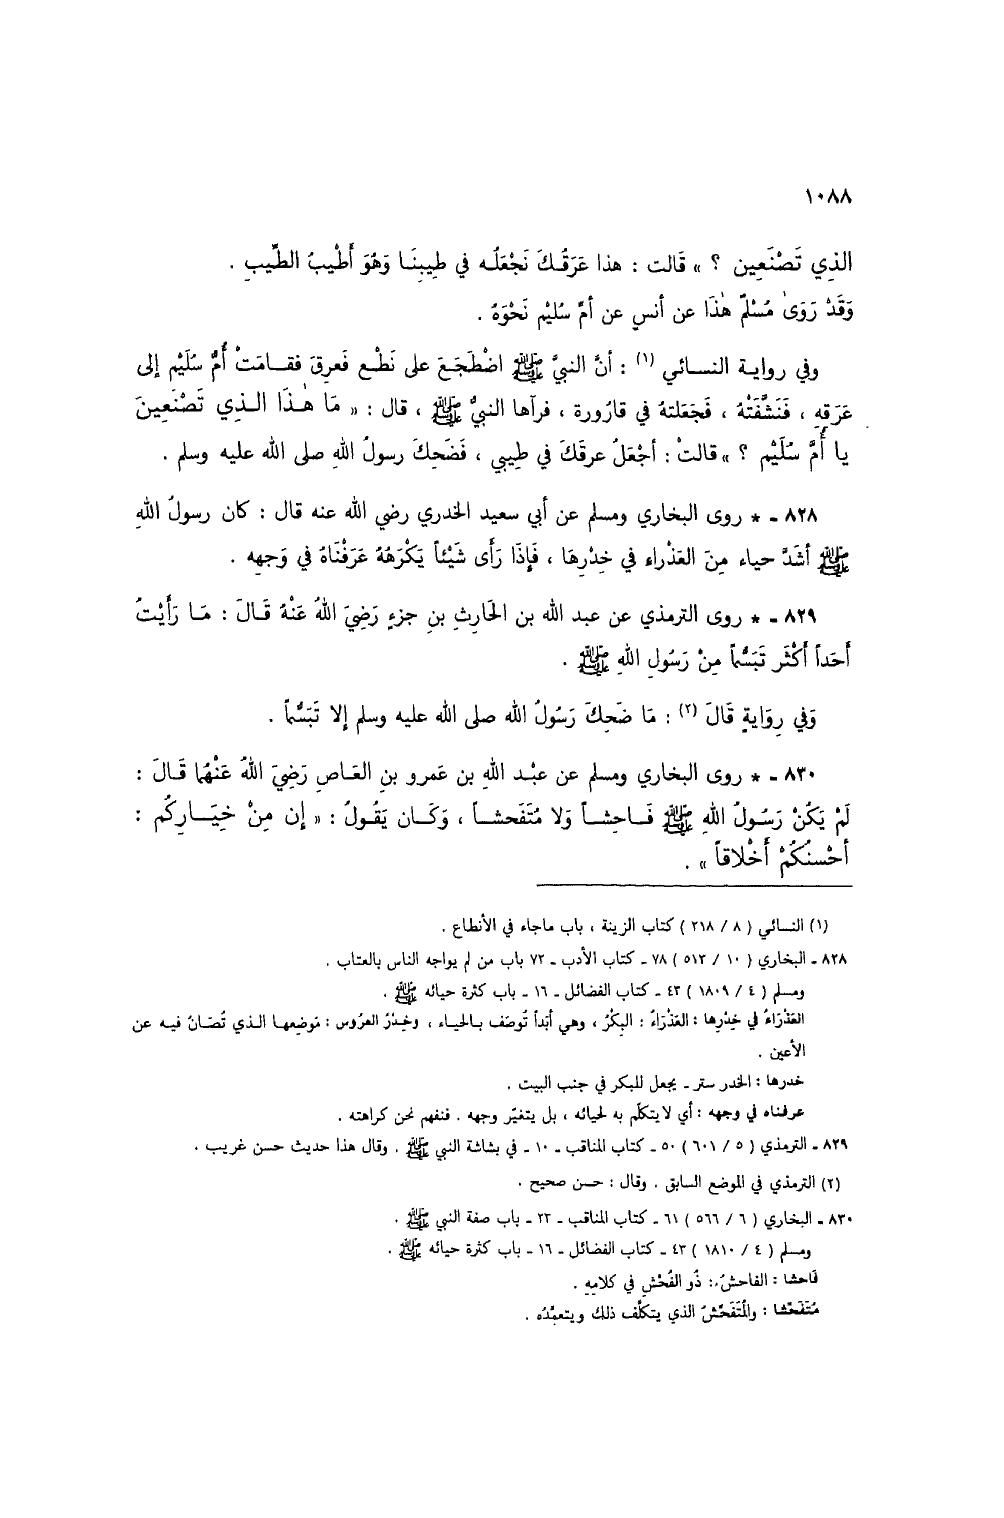 ١٠٨٨
الذِي تَصْنَعِين ؟ » قَالت : هذا عَرَقُكَ نَجْعَلُه في طيبِنَا وَهُوَ أَطْيبُ الطِّيبِ .
وَقَدْ رَوَىٰ مُسْلمٌ هٰذَا عن أنسٍ عن أمِّ سُليْم نَحْوَهُ .
وفي رواية النسائي (١) : أنَّ النبيَّ ﷺ اضْطَجَعَ على نَطْع فَعرِقَ فقامَتْ أُمُّ سُلَيْم إلى
عَرَقِهِ ، فَنَشَّفَتْهُ ، فَجَعَلتهُ في قارُورة ، فرآها النبيُّ ﷺ ، قال : « مَا هٰذَا الذِي تَصْنَعِينَ
يا أُمَّ سُلَيْم ؟ » قالتْ : أجْعَلُ عرقَكَ في طيبي ، فَضَحِكَ رسولُ اللهِ صلى الله عليه وسلم .
٨٢٨ - * روى البخاري ومسلم عن أبي سعيد الخدري رضي الله عنه قال : كان رسولُ اللهِ
ﷺ أشَدَّ حياء مِنَ العَذْراءِ في خِدْرِهَا ، فَإِذَا رَأَى شَيْئاً يَكْرَهُهُ عَرَفْنَاهُ في وَجهِهِ .
٨٢٩ - * روى الترمذي عن عبد الله بن الحَارثِ بنِ جزءٍ رَضِيَ اللهُ عَنْهُ قَالَ : مَا رَأَيْتُ
أَحَداً أَكْثَر تَبَسُّماً مِنْ رَسُولِ اللهِ ﷺ .
وَفي رِوَايةٍ قَالَ (٢) : مَا ضَحِكَ رَسُولُ الله صلى الله عليه وسلم إلا تَبَسُّماً .
٨٣٠ - * روى البخاري ومسلم عن عبْد اللهِ بن عَمرو بنِ العَاصِ رَضِيَ اللهُ عَنْهُما قَالَ :
لَمْ يَكُنْ رَسُولُ اللهِ ﷺ فَاحِشاً وَلا مُتَفَحشاً ، وَكَان يَقُولُ : « إن مِنْ خِيَارِكُم :
أحْسنُكُمْ أَخْلاقاً » .
(١) النسائي ( ٨ / ٢١٨ ) كتاب الزينة ، باب ماجاء في الأنطاع .
٨٢٨ - البخاري ( ١٠ / ٥١٣ ) ٧٨ - كتاب الأدب - ٧٢ باب من لم يواجه الناس بالعتاب .
ومسلم ( ٤ / ١٨٠٩ ) ٤٣ - كتاب الفضائل - ١٦ - باب كثرة حيائه ﷺ .
العَذْرَاءُ في خِدْرِها : العَذْرَاءُ : البِكْرُ ، وهي أبَداً تُوصَف بالحياء ، وخِدْرُ العرُوس : مَوضِعها الذي تُصَانُ فيه عن
الأعين .
خدرها : الخدر ستر - يجعل للبكر في جنب البيت .
عرفناه في وجهه : أي لا يتكلّم به لحيائه ، بل يتغيّر وجهه . فنفهم نحن كراهته .
٨٢٩ - الترمذي ( ٥ / ٦٠١ ) ٥٠ - كتاب المناقب - ١٠ - في بشاشة النبي ﷺ . وقال هذا حديث حسن غريب .
(٢) الترمذي في الموضع السابق . وقال : حسن صحيح .
٨٣٠ - البخاري ( ٦ / ٥٦٦ ) ٦١ - كتاب المناقب - ٢٣ - باب صفة النبي ﷺ .
ومسلم ( ٤ / ١٨١٠ ) ٤٣ - كتاب الفضائل - ١٦ - باب كثرة حيائه ﷺ .
فَاحشا : الفاحشُ : ذُو الفُحْشِ في كلامِهِ .
مُتَفَحِّشا : والمُتَفَحِّشُ الذي يتكلّف ذلك ويتعمَّدُه .